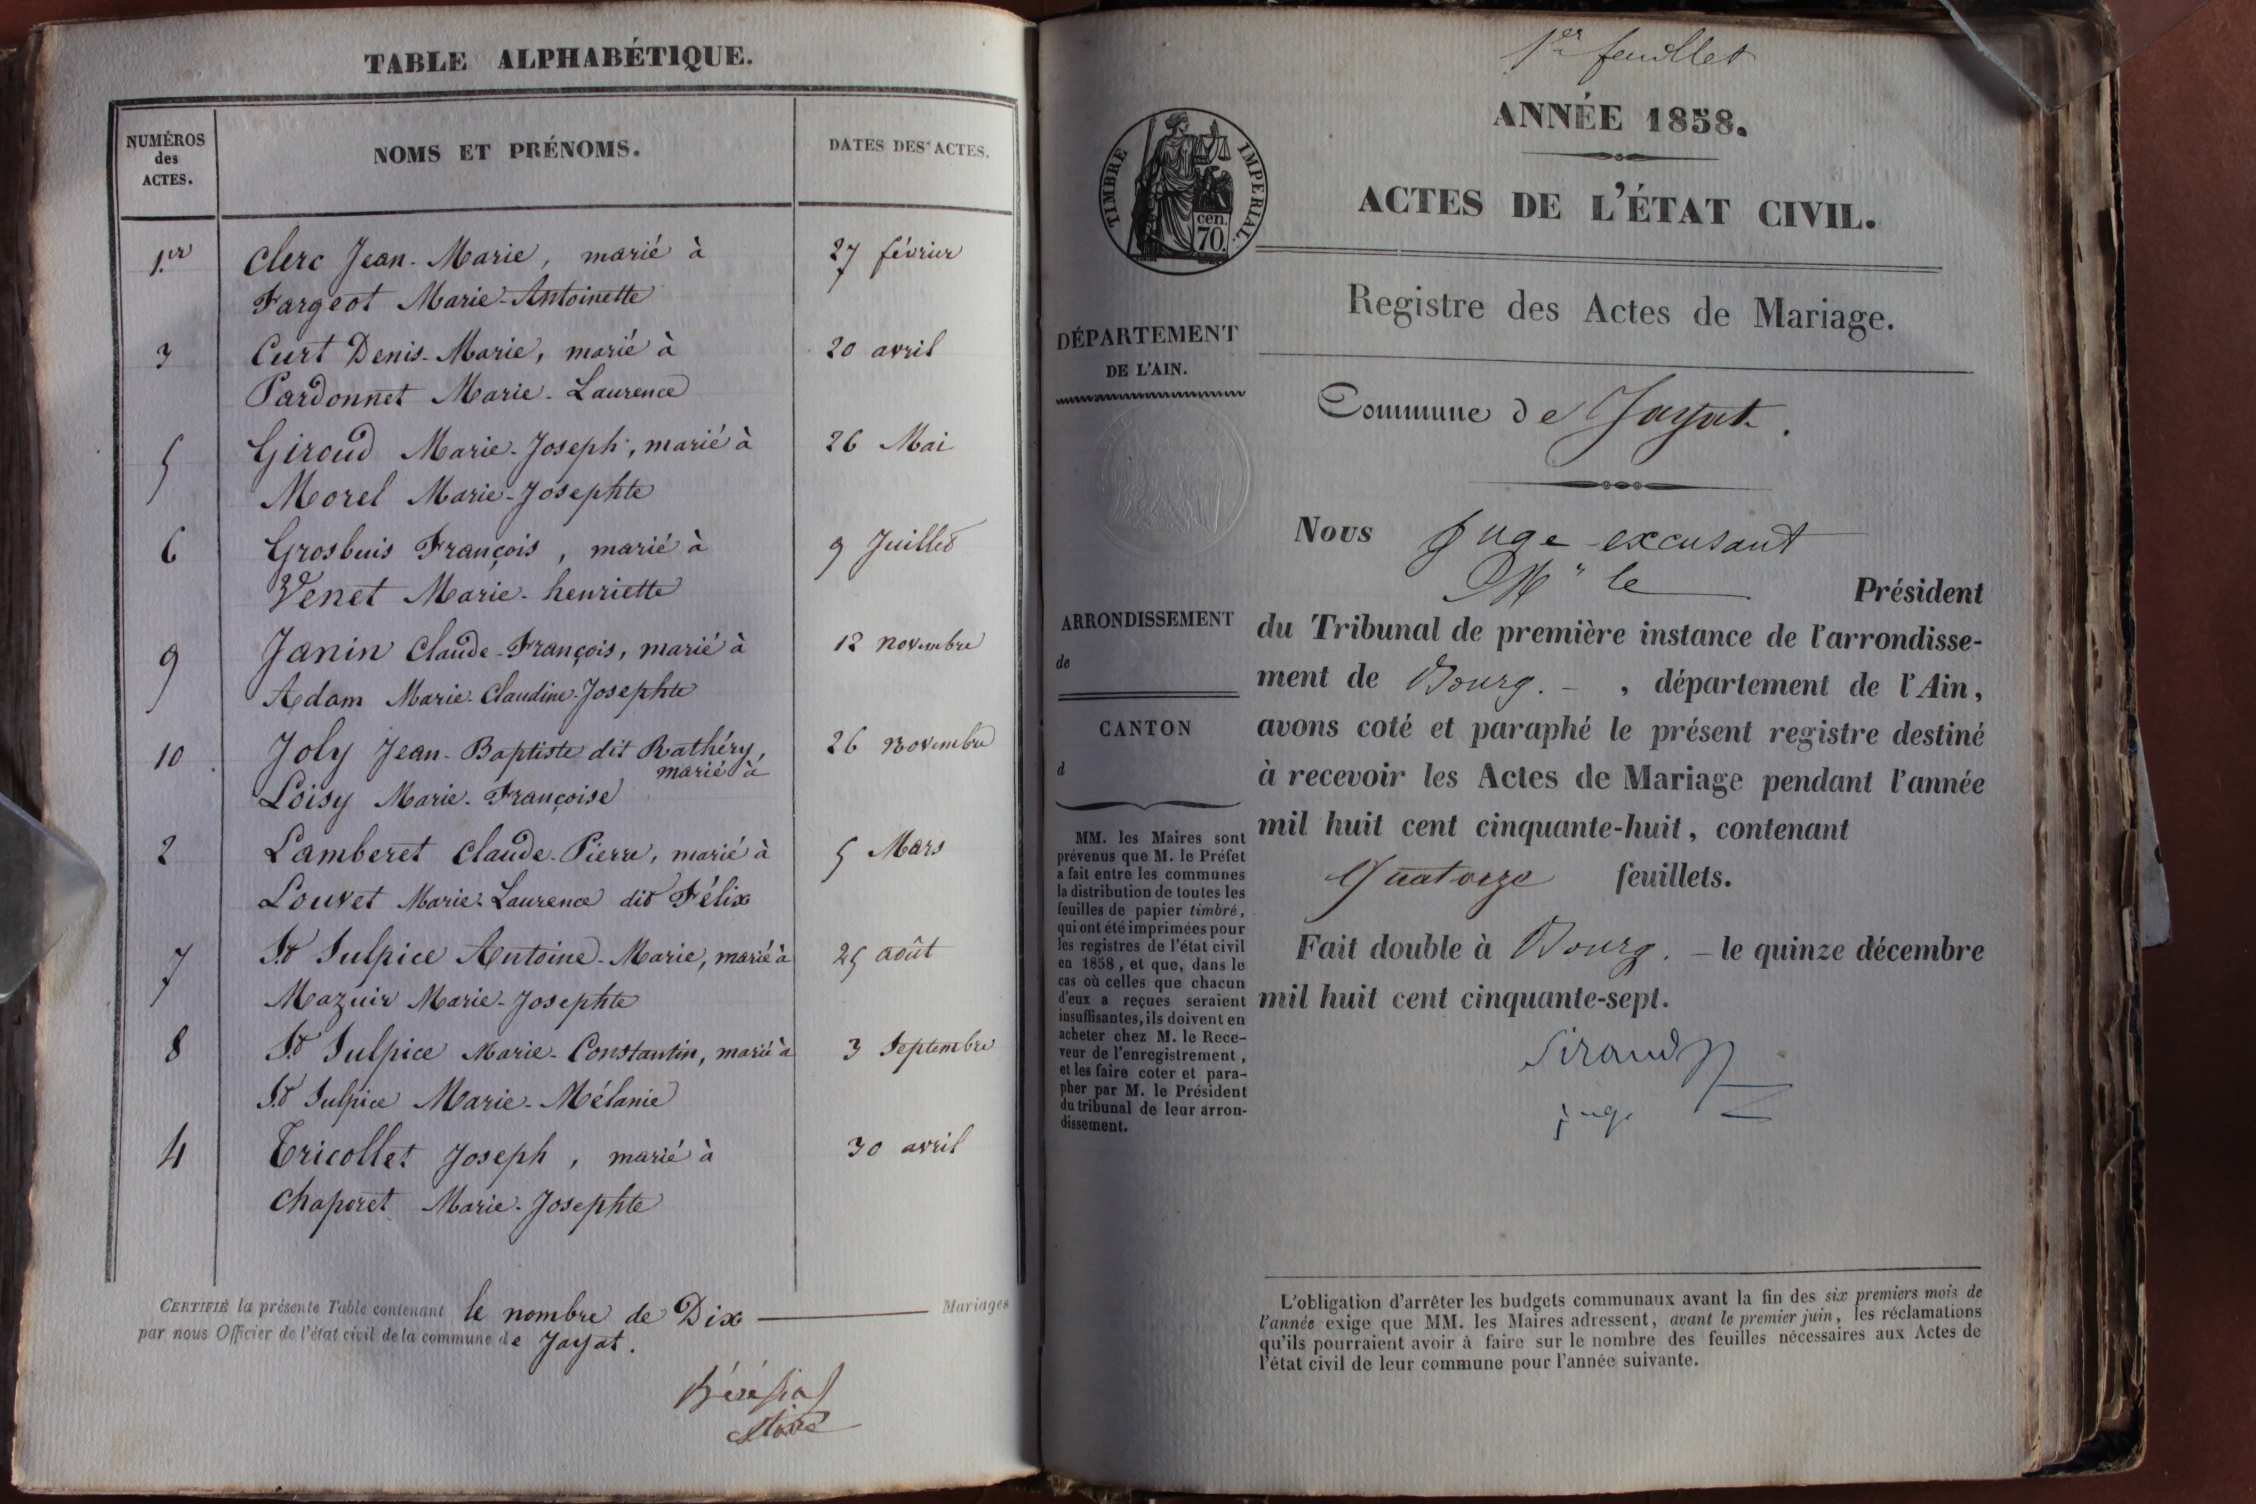 TABLE ALPHABÉTIQUE.
NUMÉROS
des
ACTES.
NOMS ET PRÉNOMS.
DATES DES ACTES.
1.er Clerc Jean-Marie, marié à 27 février
Fargeot Marie-Antoinette
3 Curt Denis-Marie, marié à 20 avril
Pardonnet Marie-Laurence
5 Giroud Marie-Joseph, marié à 26 Mai
Morel Marie-Josephte
6 Grosbuis François, marié à 9 Juillet
Venet Marie-henriette
9 Janin Claude-François, marié à 12 novembre
Adam Marie-Claudine-Josephte
10 Joly Jean-Baptiste dit Rathéry, 26 Novembre
marié à
Loisy Marie-Françoise
2 Lamberet Claude-Pierre, marié à 5 Mars
Louvet Marie-Laurence dit Félix
7 St Sulpice Antoine-Marie, marié à 25 août
Mazuir Marie-Josephte
8 St Sulpice Marie-Constantin, marié à 3 Septembre
St Sulpice Marie-Mélanie
4 Tricollet Joseph, marié à 30 avril
Chaporet Marie-Josephte
CERTIFIÉ la présente Table contenant le nombre de Dix Mariages
par nous Officier de l'état civil de la commune de Jayat.
1er feuillet
ANNÉE 1858.
ACTES DE L'ÉTAT CIVIL.
TIMBRE IMPERIAL.
cen.
70.
Registre des Actes de Mariage.
DÉPARTEMENT
DE L'AIN.
Commune de Jayat.
ARRONDISSEMENT
de
CANTON
d
MM. les Maires sont
prévenus que M. le Préfet
a fait entre les communes
la distribution de toutes les
feuilles de papier timbré,
qui ont été imprimées pour
les registres de l'état civil
en 1858, et que, dans le
cas où celles que chacun
d'eux a reçues seraient
insuffisantes, ils doivent en
acheter chez M. le Rece-
veur de l'enregistrement,
et les faire coter et para-
pher par M. le Président
du tribunal de leur arron-
dissement.
Nous Juge excusant
Mr le Président
du Tribunal de première instance de l'arrondisse-
ment de Bourg. - , département de l'Ain,
avons coté et paraphé le présent registre destiné
à recevoir les Actes de Mariage pendant l'année
mil huit cent cinquante-huit, contenant
Quatorze feuillets.
Fait double à Bourg. - le quinze décembre
mil huit cent cinquante-sept.
Siraud
juge
L'obligation d'arrêter les budgets communaux avant la fin des six premiers mois de
l'année exige que MM. les Maires adressent, avant le premier juin, les réclamations
qu'ils pourraient avoir à faire sur le nombre des feuilles nécessaires aux Actes de
l'état civil de leur commune pour l'année suivante.